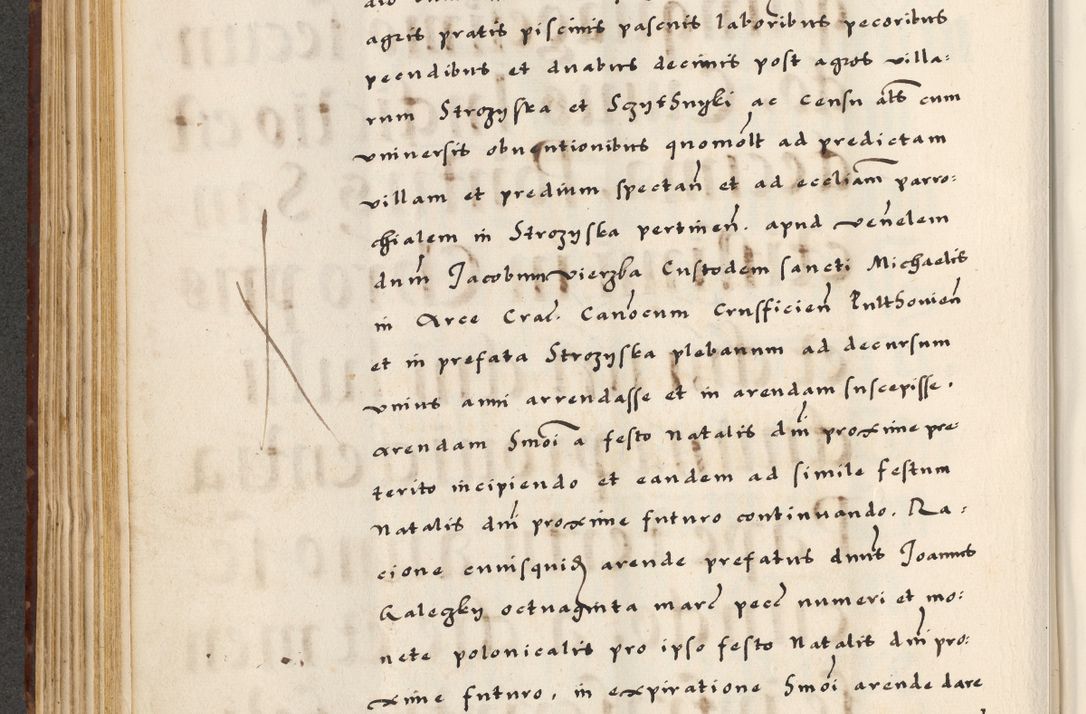 agris pratis piscinis pascuis laboribus pecoribus
pecudibus et duabus decimis post agros villa:
rum Strozyska et SczytSnyki ac censu als cum
universis obventionibus quomolt ad predictam
villam et predium spectan et ad eccliam parro:
chialem in Strozyska pertinen. apud venelem
dnm Jacobum vierzba Custodem sancti Michaelis
in Arce Crac. Canocum Crusficien Pulthovien
et in prefata Strozyska plebanum ad decursum
unius anni arrendasse et in arendam suscepisse.
arendam Smoi a festo Natalis dni proxime pre
terito incipiendo et eandem ad simile festum
Natalis dni proxime futuro continuando. Ra:
cione cuiusquid arende prefatus dnus Joannes
Kaleczky octuaginta marc pecc numeri et mo:
nete polonicalis pro ipso festo Natalis dni pro:
xime futuro, in expiratione Smoi arende dare